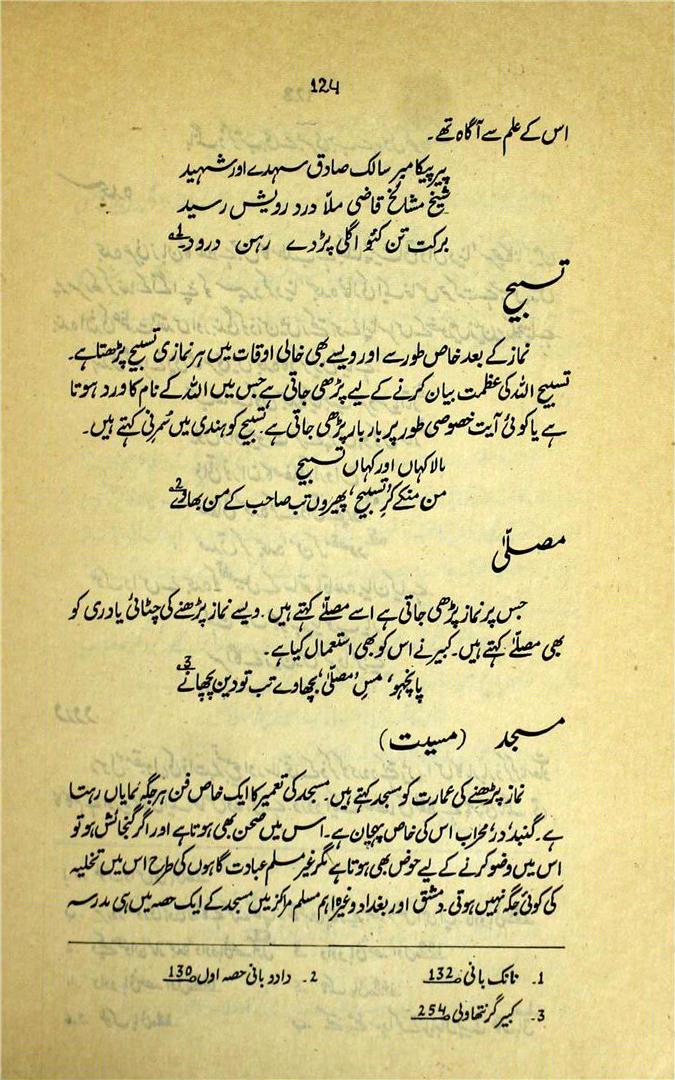 124
اس کے علم سے آگاہ تھے۔
پیر پیکامبر سالک صادق سہدے اور شہید
شیخ مشائخ قاضی ملّا درد رویش رسید
برکت تن کئو اگلی پڑدے رہن درود 1ے
تسبیح
نماز کے بعد خاص طور سے اور ویسے بھی خالی اوقات میں ہر نمازی تسبیح پڑھتا ہے۔
تسبیح اللہ کی عظمت بیان کرنے کے لیے پڑھی جاتی ہے جس میں اللہ کے نام کا ورد ہوتا
ہے یا کوئی آیت خصوصی طور پر بار بار پڑھی جاتی ہے۔ تسبیح کو ہندی میں سُمرنی کہتے ہیں۔
مالا کہاں اور کہاں تسبیح
من منکے کر 'تسبیح' پھیروں تب صاحب کے من بھاوے 2ے
مصلّیٰ
جس پر نماز پڑھی جاتی ہے اسے مصلّے کہتے ہیں۔ ویسے نماز پڑھنے کی چٹائی یا دری کو
بھی مصلّے کہتے ہیں۔ کبیر نے اس کو بھی استعمال کیا ہے۔
پانچہو، مِس 'مصلّٰی' بچھاوے تب تو دین پچھانے 3ے
مسجد (مسیت)
نماز پڑھنے کی عمارت کو مسجد کہتے ہیں۔ مسجد کی تعمیر کا ایک خاص فن ہر جگہ نمایاں رہتا
ہے۔ گنبد، در، محراب اس کی خاص پہچان ہے۔ اس میں صحن بھی ہوتا ہے اور اگر گنجائش ہو تو
اس میں وضو کرنے کے لیے حوض بھی ہوتا ہے مگر غیر مسلم عبادت گاہوں کی طرح اس میں تخلیہ
کی کوئی جگہ نہیں ہوتی۔ دمشق اور بغداد وغیرہ اہم مسلم مراکز میں مسجد کے ایک حصہ میں ہی مدرسہ
1۔ نانک بانی ص132 2۔ دادو بانی حصہ اول ص130
3۔ کبیر گرنتھاولی ص254